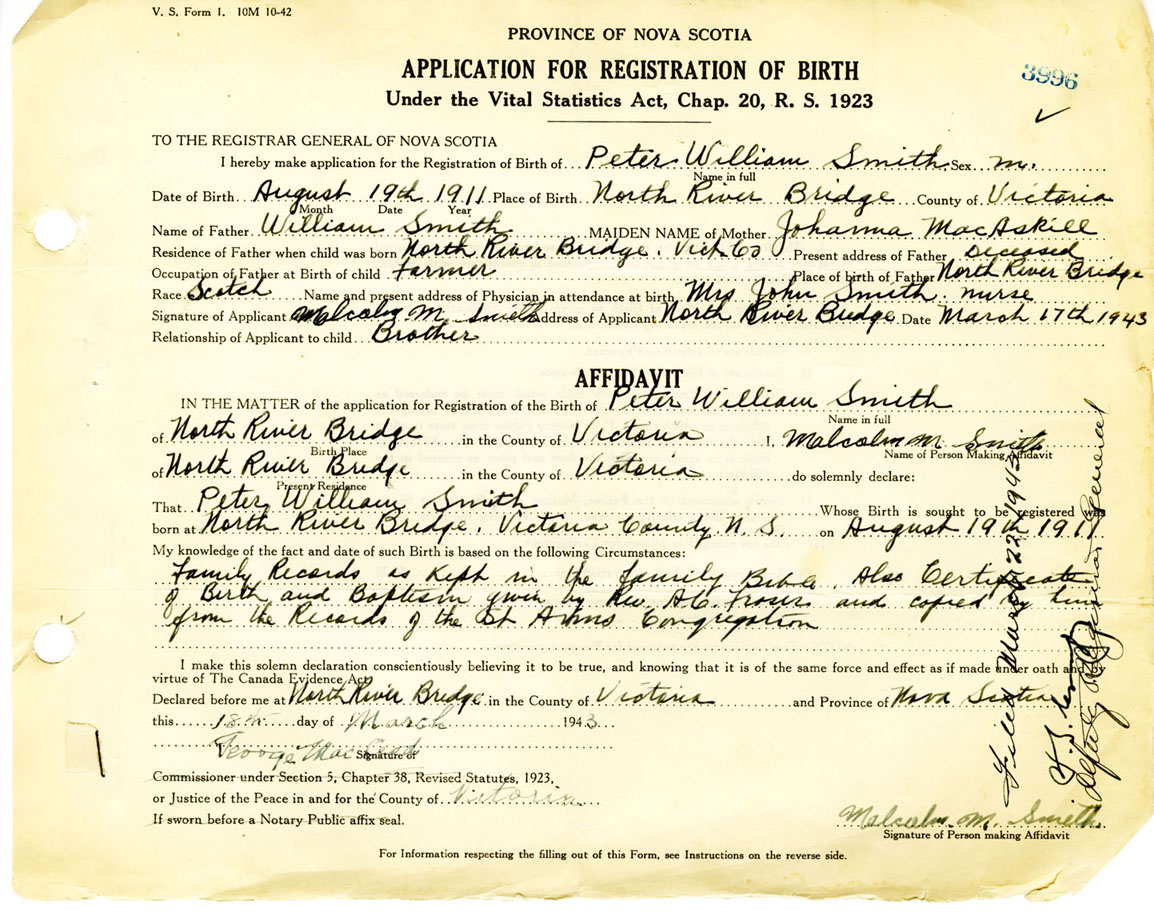 V. S. Form 1. 10M 10-42
PROVINCE OF NOVA SCOTIA
APPLICATION FOR REGISTRATION OF BIRTH
3996
Under the Vital Statistics Act, Chap. 20, R. S. 1923
TO THE REGISTRAR GENERAL OF NOVA SCOTIA
I hereby make application for the Registration of Birth of Peter William Smith Sex m.
Name in full
Date of Birth August 19th 1911 Place of Birth North River Bridge County of Victoria
Month Date Year
Name of Father William Smith MAIDEN NAME of Mother Johanna MacAskill
Residence of Father when child was born North River Bridge. Vict. Co Present address of Father Deceased
Occupation of Father at Birth of child Farmer Place of birth of Father North River Bridge
Race Scotch Name and present address of Physician in attendance at birth Mrs John Smith. nurse
Signature of Applicant Malcolm M. Smith Address of Applicant North River Bridge. Date March 17th 1943
Relationship of Applicant to child Brother
AFFIDAVIT
IN THE MATTER of the application for Registration of the Birth of Peter William Smith
Name in full
of North River Bridge in the County of Victoria I, Malcolm M. Smith
Birth Place Name of Person Making Affidavit
of North River Bridge in the County of Victoria do solemnly declare:
Present Residence
That Peter William Smith Whose Birth is sought to be registered was
born at North River Bridge. Victoria County N. S. on August 19th 1911
My knowledge of the fact and date of such Birth is based on the following Circumstances:
Family Records as Kept in the family Bible. Also Certificate
of Birth and Baptism given by Rev. A.C. Fraser and copied by him
from the Records of the St Anns Congregation
I make this solemn declaration conscientiously believing it to be true, and knowing that it is of the same force and effect as if made under oath and by
virtue of The Canada Evidence Act.
Declared before me at North River Bridge in the County of Victoria and Province of Nova Scotia
this 18th day of March 1943
George Mac
Signature of
Commissioner under Section 5, Chapter 38, Revised Statutes, 1923,
or Justice of the Peace in and for the County of Victoria
If sworn before a Notary Public affix seal.
Malcolm. M. Smith
Signature of Person making Affidavit
For Information respecting the filling out of this Form, see Instructions on the reverse side.
Filed March 22 1943
Deputy Registrar General